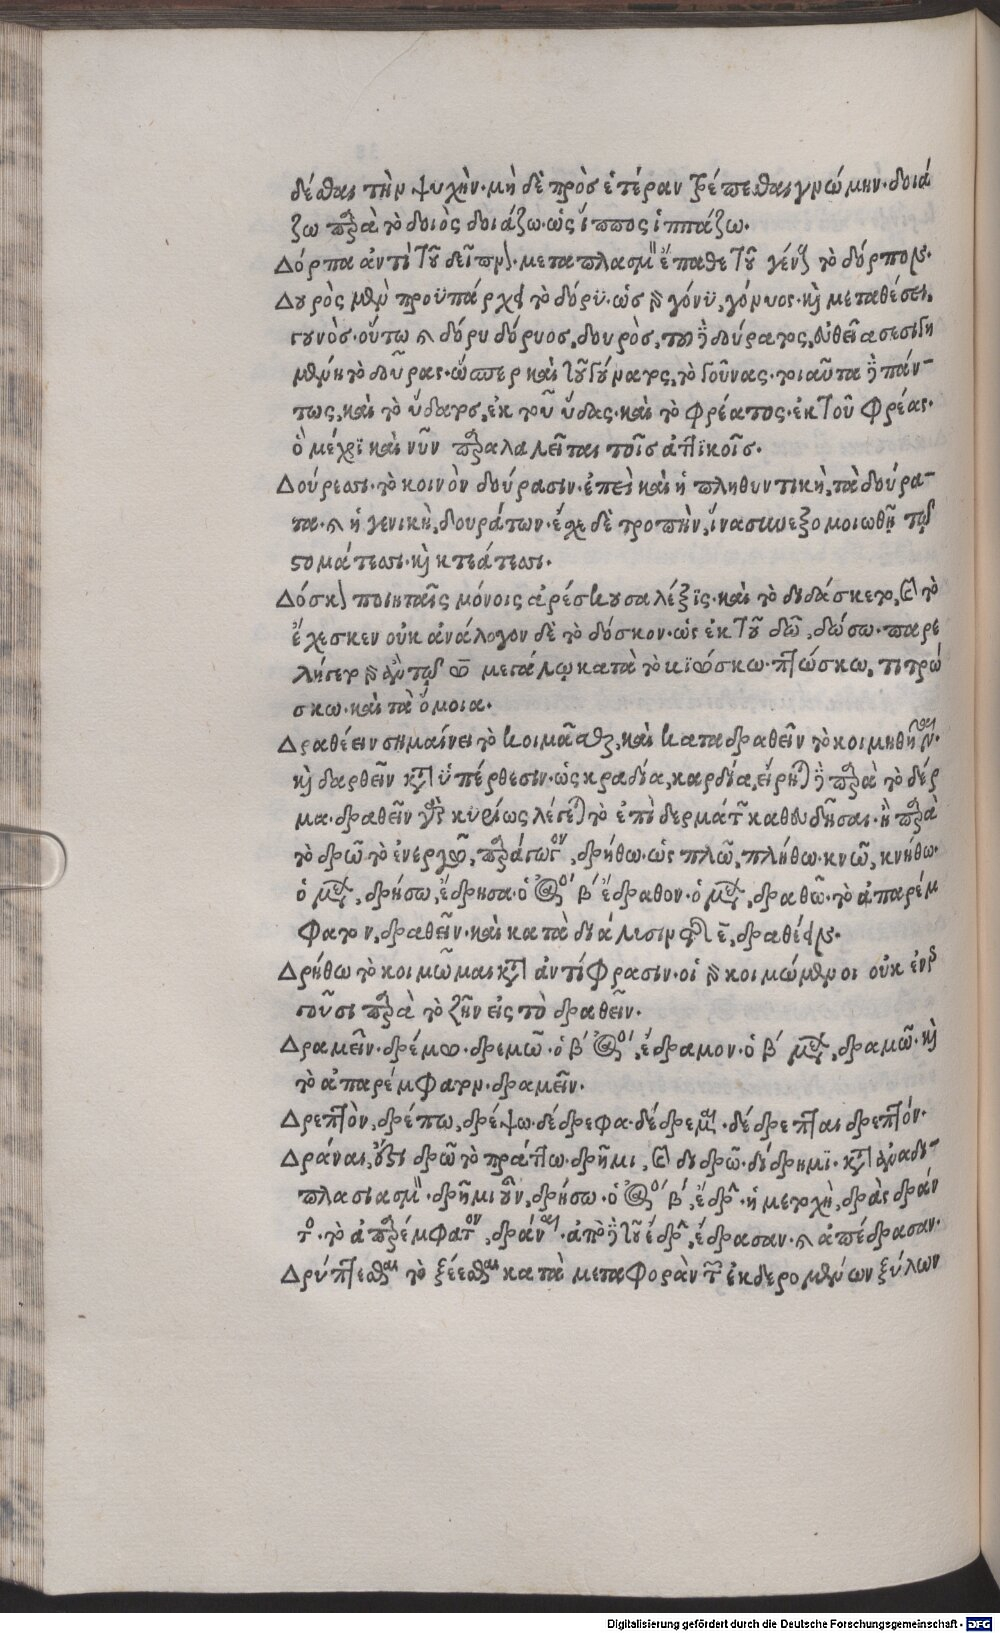 δέσθαι τὴν ψυχήν· μὴ δὲ πρὸς ἑτέραν τρέπεσθαι γνώμην· δοιά
ζω παρὰ τὸ δοιὸς δοιάζω· ὡς ἵππος ἱππάζω.
Δόρπα ἀντὶ τοῦ δεῖπνον· μεταπλασμὸν ἔπαθε τοῦ γένους τὸ δόρπον.
Δουρὸς μὲν προϋπάρχει τὸ δόρυ· ὡς γόνυ, γόνυος· καὶ μεταθέσει,
γουνὸς· οὕτω καὶ δόρυ δόρυος, δουρὸς, τοῦ δὲ δούρατος, εὐθεῖα
μὲν τὸ δοῦρας· ὥσπερ καὶ τοῦ γούνατος, τὸ γοῦνας· τοιαῦτα δὲ πάν-
τως, καὶ τὸ ὕδατος, ἐκ τοῦ ὕδας· καὶ τὸ φρέατος· ἐκ τοῦ φρέας·
ὃ μέχρι καὶ νῦν παραλαλεῖται τοῖς ἀττικοῖς.
Δούρεσσι· τὸ κοινὸν δούρασιν· ἐπεὶ καὶ ἡ πληθυντικὴ, τὰ δούρα-
τα· καὶ ἡ γενικὴ, δουράτων· ἔχει δὲ τροπὴν, ἵνα συνεξομοιωθῇ τῷ
στομάτεσσι· καὶ κτεάτεσσι.
Δόσκον ποιηταῖς μόνοις ἀρέσκουσα λέξις· καὶ τὸ διδάσκετο, καὶ τὸ
ἔχεσκεν οὐκ ἀνάλογον δὲ τὸ δόσκον· ὡς ἐκ τοῦ δῶ, δώσω· παρε
λήγετο γὰρ ἂν τῷ ω μεγάλῳ κατὰ τὸ πτώσκω, τιτρώ
σκω· καὶ τὰ ὅμοια.
Δραθέειν σημαίνει τὸ κοιμᾶσθαι, καὶ καταδραθεῖν τὸ κοιμηθῆναι·
καὶ δαρθεῖν κατὰ ὑπέρθεσιν· ὡς κραδία, καρδία, εἴρηται δὲ παρὰ τὸ δέρ
μα· δραθεῖν γὰρ κυρίως λέγεται τὸ ἐπὶ δερμάτων καθευδῆσαι· ἢ παρὰ
τὸ δρῶ τὸ ἐνεργῶ, παράγωγον, δρήθω· ὡς πλῶ, πλήθω· κνῶ, κνήθω·
ὁ μέλλων, δρήσω, ἔδρησα· ὁ ἀόριστος β´ ἔδραθον· ὁ μέλλων, δραθῶ· τὸ ἀπαρέμ
φατον, δραθεῖν· καὶ κατὰ διάλυσιν ε, δραθέειν.
Δρήθω τὸ κοιμῶμαι κατὰ ἀντίφρασιν· οἱ γὰρ κοιμώμενοι οὐκ ἐνερ
γοῦσι παρὰ τὸ ζῆν εἰς τὸ δραθεῖν.
Δραμεῖν· δρέμω· δρεμῶ· ὁ β´ ἀόριστος, ἔδραμον· ὁ β´ μέλλων, δραμῶ· καὶ
τὸ ἀπαρέμφατον· δραμεῖν.
Δρεπτὸν, δρέπω, δρέψω· δέδρεφα· δέδρεμμαι· δέδρεπται δρεπτόν.
Δράναι, δρῶ τὸ πράττω· δρῆμι, καὶ διδρῶ· δίδρημι· κατὰ ἀναδι-
πλασιασμὸν· δρῆμι, δρήσω· ὁ ἀόριστος β´, ἔδρην· ἡ μετοχὴ, δρὰς δράν
τος· τὸ ἀπαρέμφατον, δράναι· ἀπὸ δὲ τοῦ ἔδρην, ἔδρασαν· καὶ ἀπέδρασαν.
Δρύπτεσθαι τὸ ξέεσθαι κατὰ μεταφορὰν τῶν ἐκδερομένων ξύλων
Digitalisierung gefördert durch die Deutsche Forschungsgemeinschaft - DFG